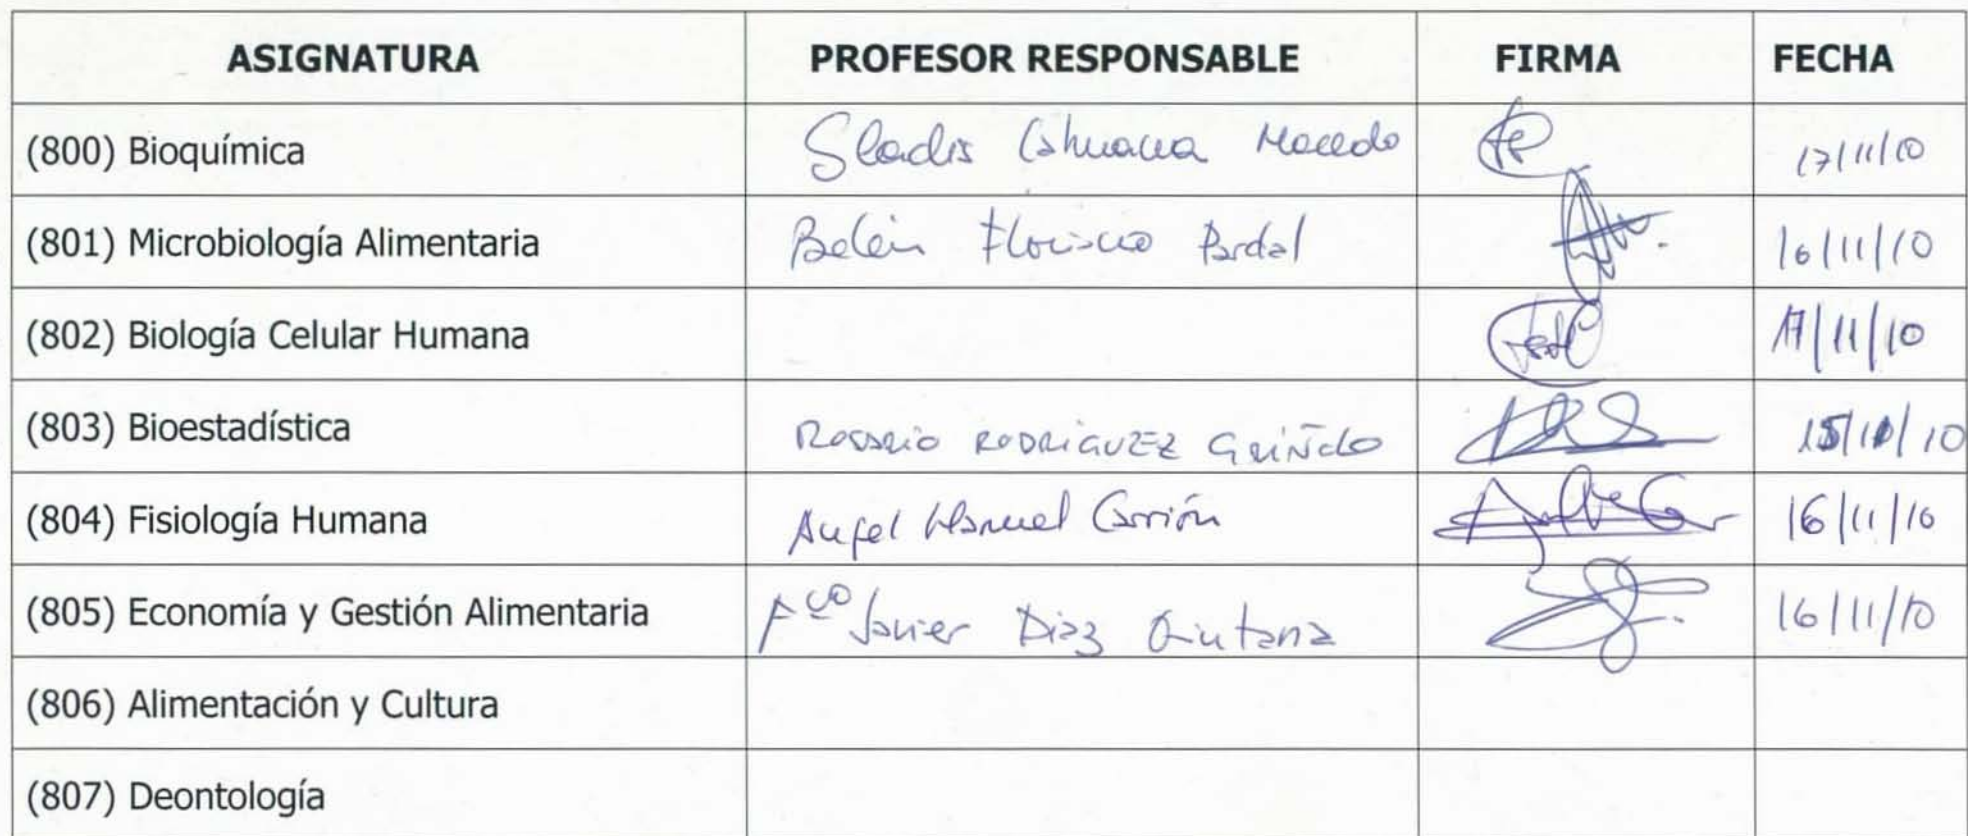 ASIGNATURA PROFESOR RESPONSABLE FIRMA FECHA
(800) Bioquímica Gladis Cahuana Macedo 17/11/10
(801) Microbiología Alimentaria Belén Floriano Pardal 16/11/10
(802) Biología Celular Humana 17/11/10
(803) Bioestadística ROSARIO RODRIGUEZ GRIÑOLO 15/11/10
(804) Fisiología Humana Angel Manuel Carrión 16/11/10
(805) Economía y Gestión Alimentaria Fco Javier Diaz Quintana 16/11/10
(806) Alimentación y Cultura
(807) Deontología